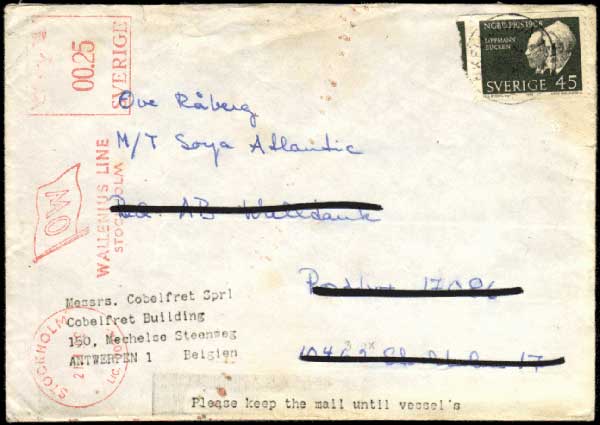 00.25
SVERIGE
NOBELPRIS 1908
LIPPMANN
EUCKEN
SVERIGE 45
Ove Råberg
M/T Soya Atlantic
AB
OW
WALLENIUS LINE
STOCKHOLM
Messrs. Cobelfret Sprl
Cobelfret Building
150, Mechelse Steenweg
ANTWERPEN 1 Belgien
STOCKHOLM
Please keep the mail until vessel's